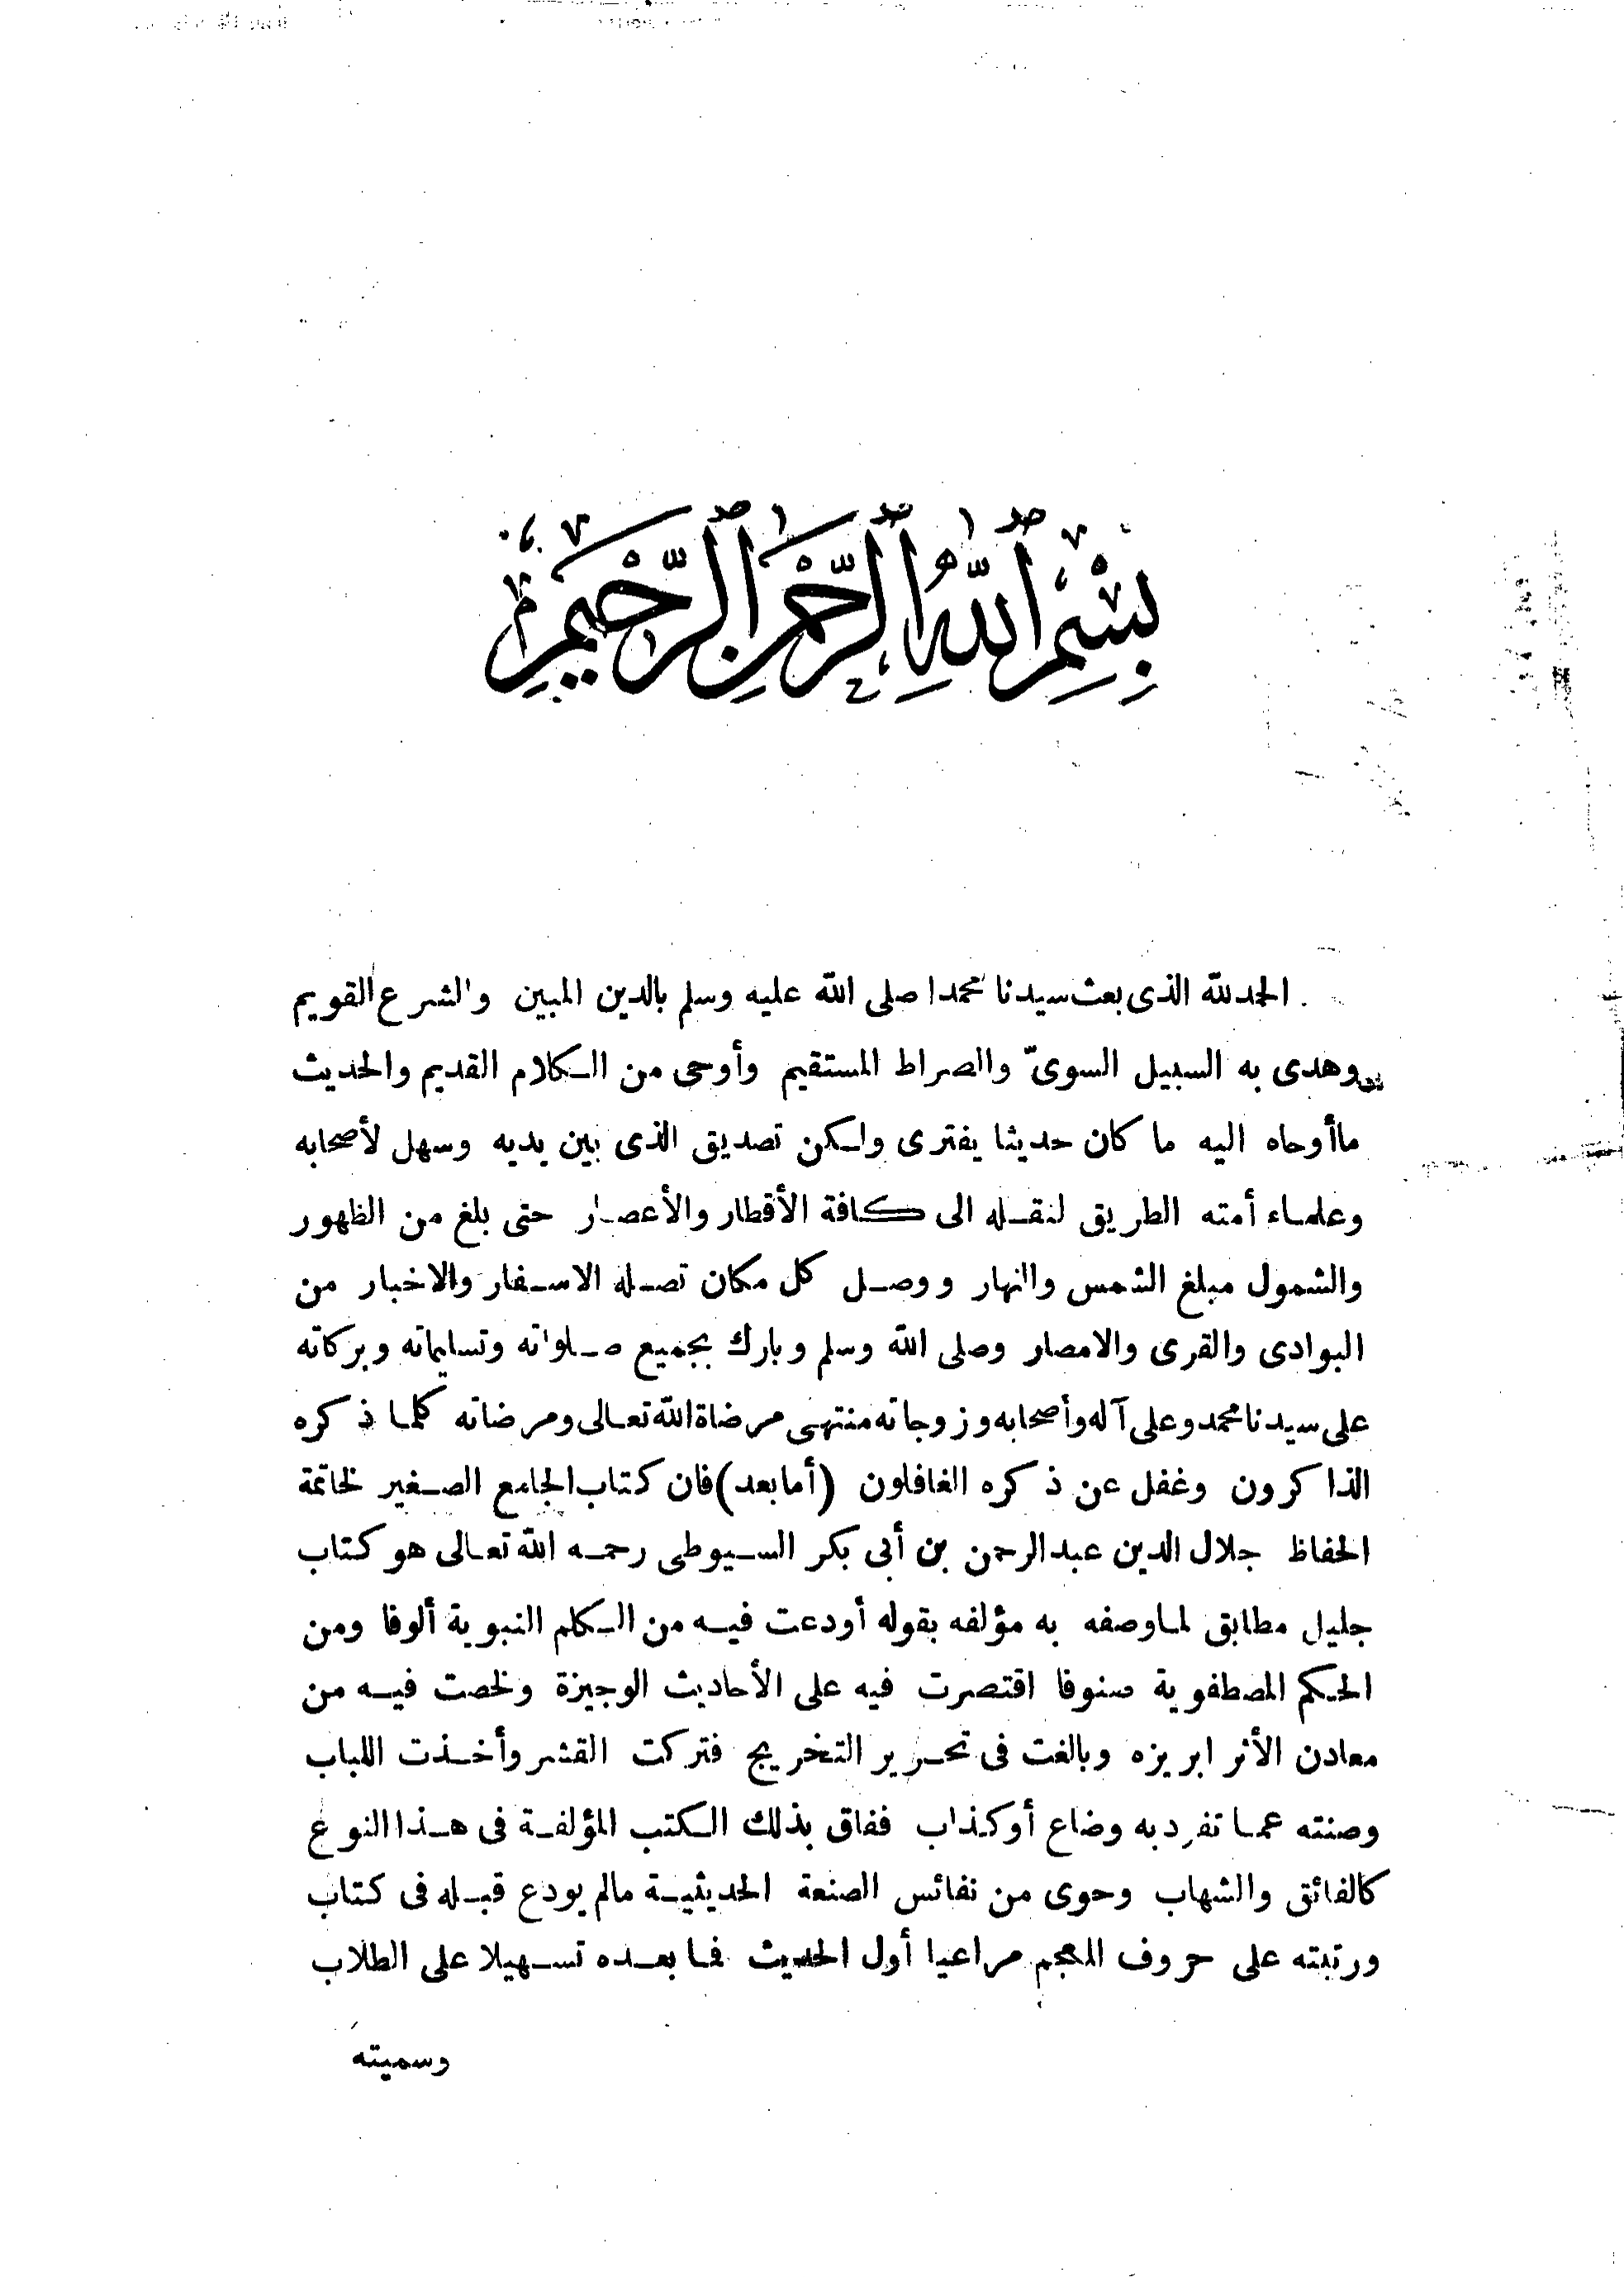 بِسْمِ اللّٰهِ الرَّحْمٰنِ الرَّحِيمِ
الحمد لله الذى بعث سيدنا محمدا صلى الله عليه وسلم بالدين المبين والشرع القويم
وهدى به السبيل السوىّ والصراط المستقيم وأوحى من الكلام القديم والحديث
ماأوحاه اليه ما كان حديثا يفترى ولكن تصديق الذى بين يديه وسهل لأصحابه
وعلماء أمته الطريق لنقله الى كافة الأقطار والأعصار حتى بلغ من الظهور
والشمول مبلغ الشمس والنهار ووصل كل مكان تصله الاسفار والاخبار من
البوادى والقرى والامصار وصلى الله وسلم وبارك بجميع صلواته وتسليماته وبركاته
على سيدنا محمد وعلى آله وأصحابه وزوجاته منتهى مرضاة الله تعالى ومرضاته كلما ذكره
الذاكرون وغفل عن ذكره الغافلون (أما بعد) فان كتاب الجامع الصغير لخاتمة
الحفاظ جلال الدين عبد الرحمن بن أبى بكر السيوطى رحمه الله تعالى هو كتاب
جليل مطابق لما وصفه به مؤلفه بقوله أودعت فيه من الكلم النبوية ألوفا ومن
الحكم المصطفوية صنوفا اقتصرت فيه على الأحاديث الوجيزة ولخصت فيه من
معادن الأثر ابريزه وبالغت فى تحرير التخريج فتركت القشر وأخذت اللباب
وصنته عما تفرد به وضاع أو كذاب ففاق بذلك الكتب المؤلفة فى هذا النوع
كالفائق والشهاب وحوى من نفائس الصنعة الحديثية مالم يودع قبله فى كتاب
ورتبته على حروف المعجم مراعيا أول الحديث فما بعده تسهيلا على الطلاب
وسميته